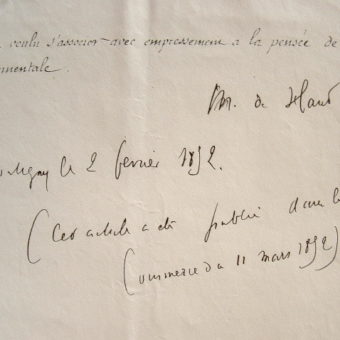 voulu s'associer avec empressement à la pensée de
mentale.
M. de
le 2 février 1892.
(Cet article a été publié dans le
Commerce du 11 mars 1892)